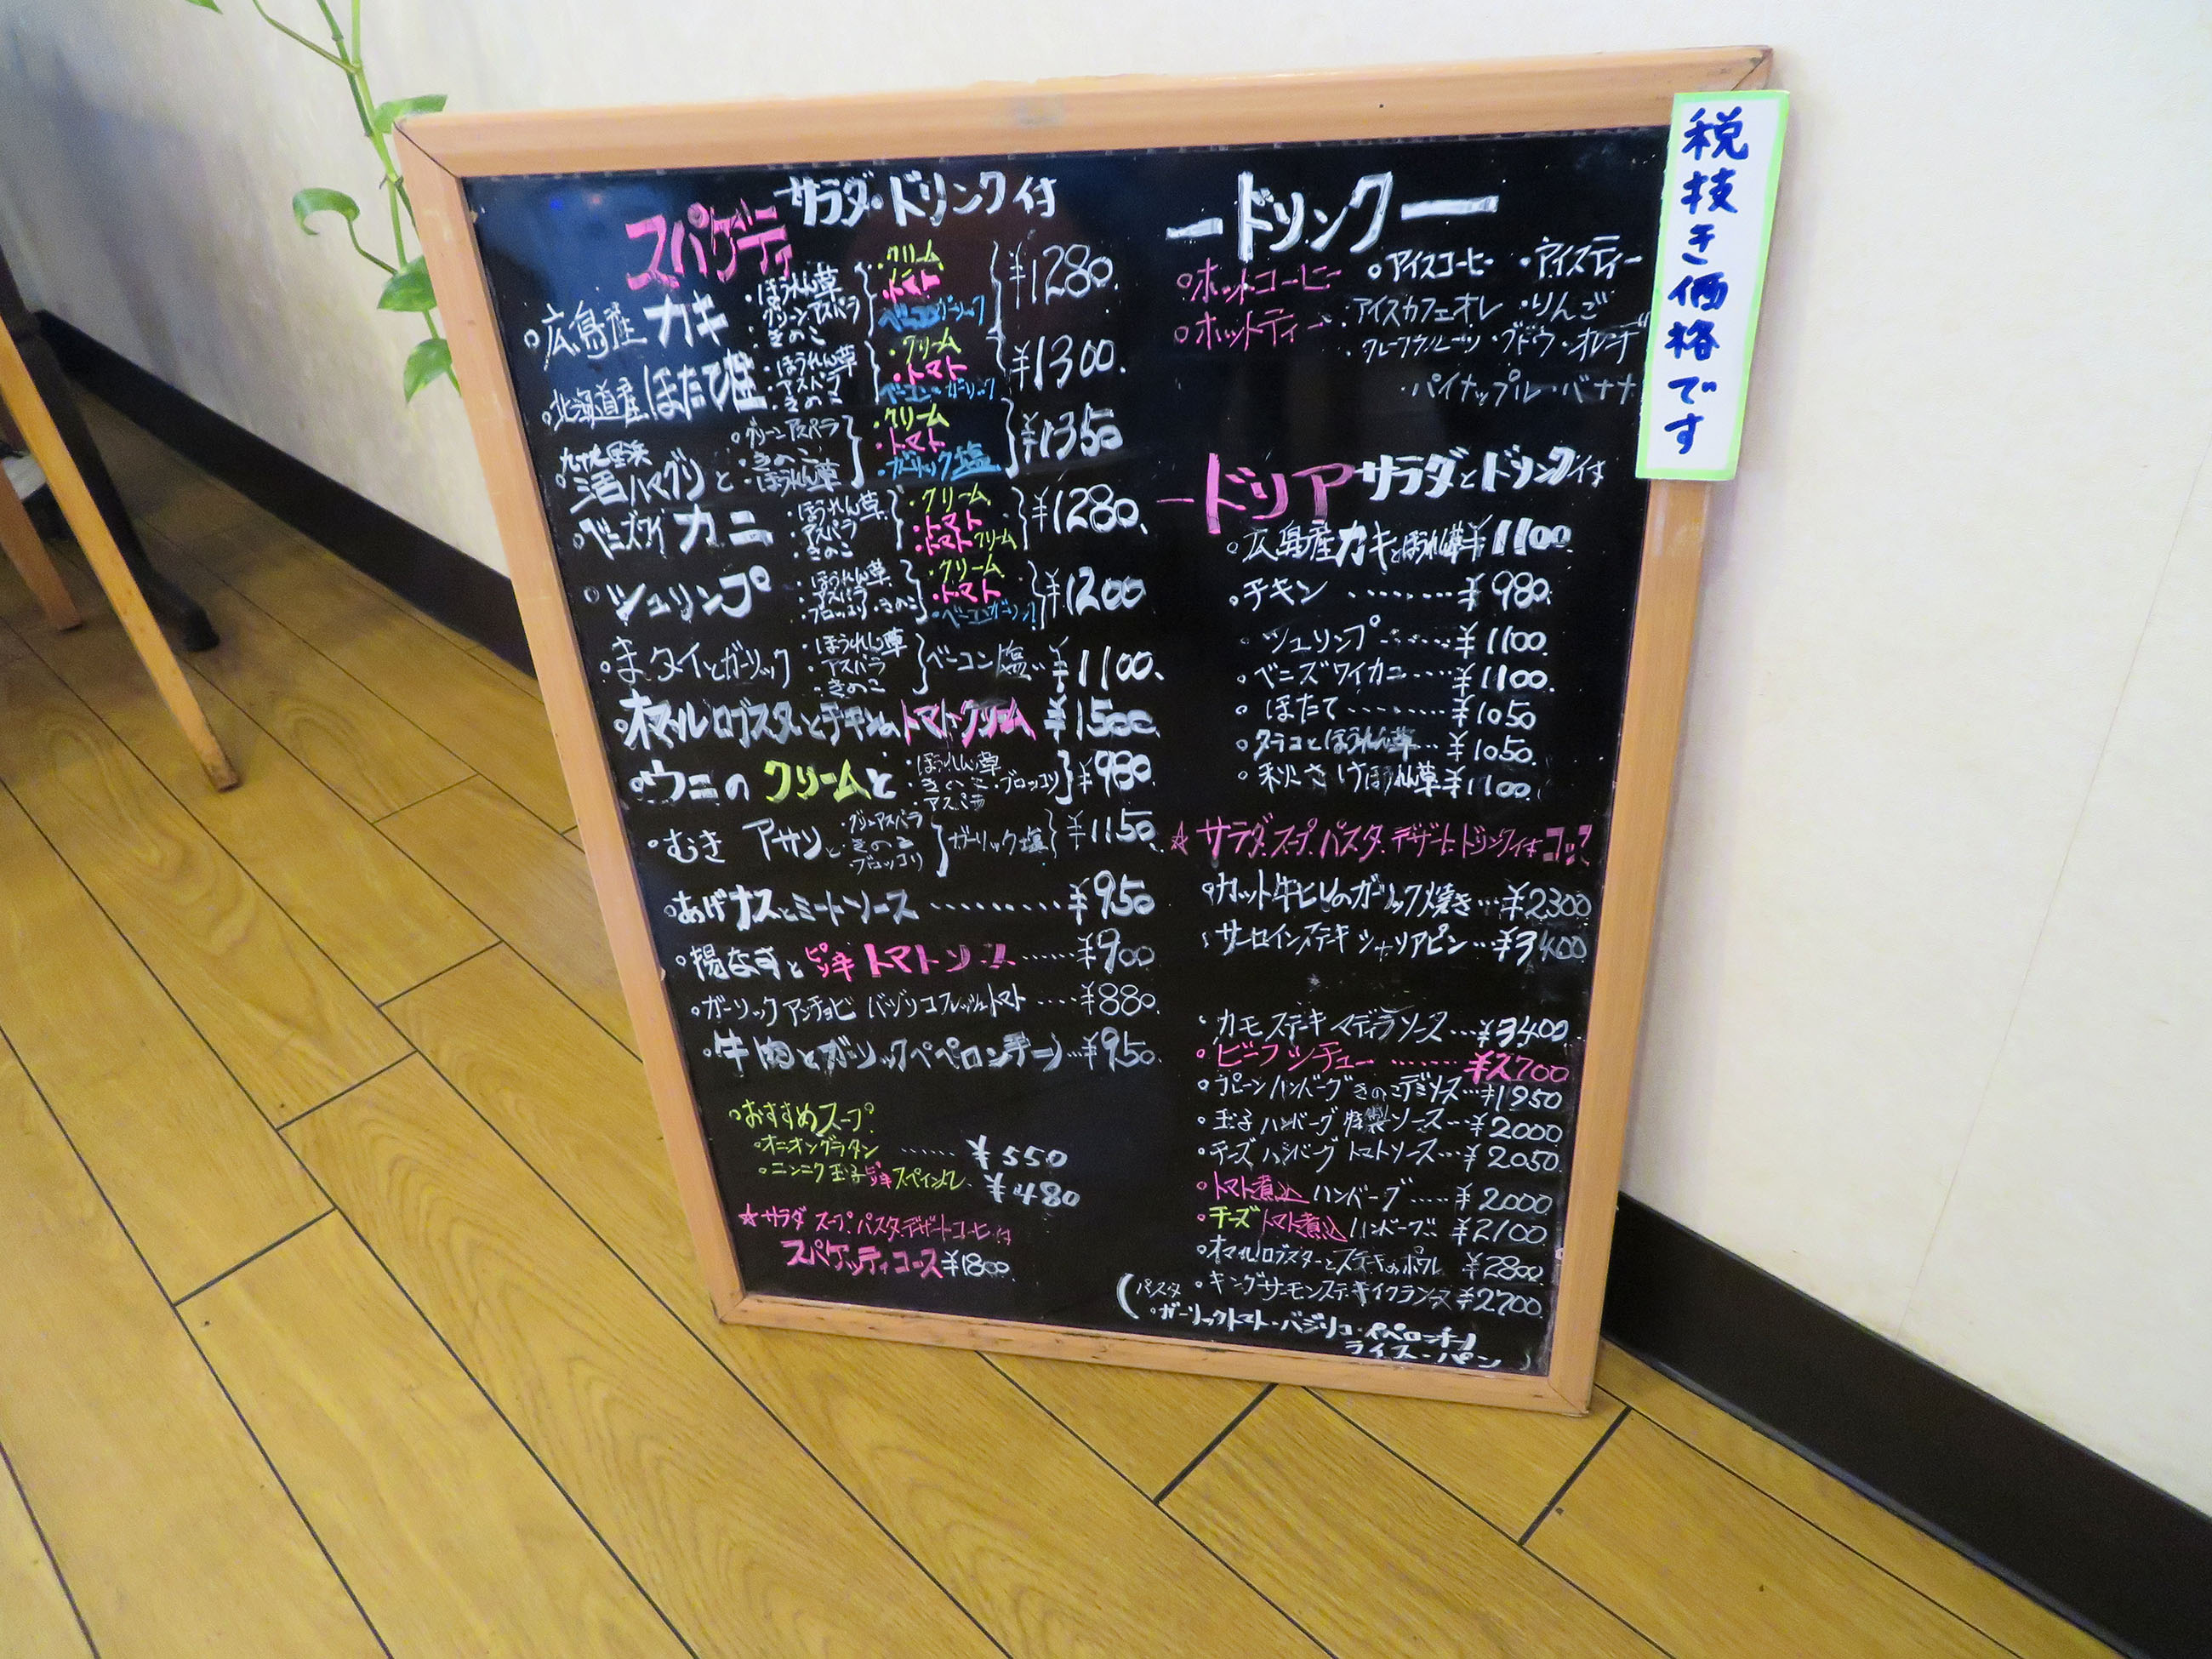 スパゲティ サラダ・ドリンク付
○広島産カキ ・ほうれん草 ・グリーンアスパラ ・きのこ ・クリーム ・トマト ・ベーコンガーリック ¥1280.
○北海道産ほたて ・ほうれん草 ・アスパラ ・きのこ ・クリーム ・トマト ・ベーコン・ガーリック ¥1300.
九十九里浜
ハマグリと ○グリーンアスパラ ・きのこ ・ほうれん草 ・クリーム ・トマト ・ガーリック塩 ¥1350
○ベニズワイカニ ・ほうれん草 ・アスパラ ・きのこ ・クリーム ・トマト ・トマトクリーム ¥1280.
○シュリンプ ・ほうれん草 ・アスパラ ・ブロッコリ・きのこ ・クリーム ・トマト ・ベーコンガーリック ¥1200
タイとガーリック ・ほうれん草 ・アスパラ ・きのこ ベーコン塩 ¥1100.
○オマールロブスターとチキンのトマトクリーム ¥1500.
○ウニのクリームと ・ほうれん草 ・きのこ・ブロッコリ ・アスパラ ¥980
○むきアサリと ・グリーンアスパラ ・きのこ ブロッコリ ガーリック塩 ¥1150.
○あげナスとミートソース .......... ¥950
○揚なすとピリ辛トマトソース ...... ¥900
○ガーリックアンチョビ バジリコフレッシュトマト .... ¥880.
○牛肉とガーリックペペロンチーノ...¥950.
○おすすめスープ
○オニオングラタン ...... ¥550
○ニンニク玉子ピリ辛スペインよし. ¥480
☆サラダ スープ.パスタ.デザートコーヒー付
スパゲッティコース ¥1800.
ードリンクー
○ホットコーヒー ○アイスコーヒー ・アイスティー
○ホットティー ・アイスカフェオレ ・りんご
・グレープフルーツ・ブドウ・オレンヂ
・パイナップル・バナナ
ードリア サラダとドリンク付
○広島産カキとほうれん草 ¥1100
○チキン ........ ¥980.
○シュリンプ....... ¥1100.
○ベニズワイカニ.... ¥1100.
○ほたて........ ¥1050
○タラコとほうれん草... ¥1050.
○秋さけほうれん草 ¥1100.
☆サラダ.スープ.パスタ.デザート.ドリンク付コース
○カット牛ヒレのガーリック焼き...¥2300
○サーロインステーキ シャリアピン...¥3400
○カモステーキマディラソース...¥3400
○ビーフシチュー ....... ¥2700
○プレーンハンバーグきのこデミソース...¥1950
○玉子ハンバーグ特製ソース...¥2000
○チーズハンバーグトマトソース...¥2050.
○トマト煮込ハンバーグ..... ¥2000
○チーズトマト煮込ハンバーグ.. ¥2100
○オマールロブスターとステーキのポワレ ¥2800
(パスタ ○キングサーモンステーキイクラソース ¥2700.
○ガーリックトマト・バジリコ・ペペロンチーノ
ライス・パン )
税抜き価格です